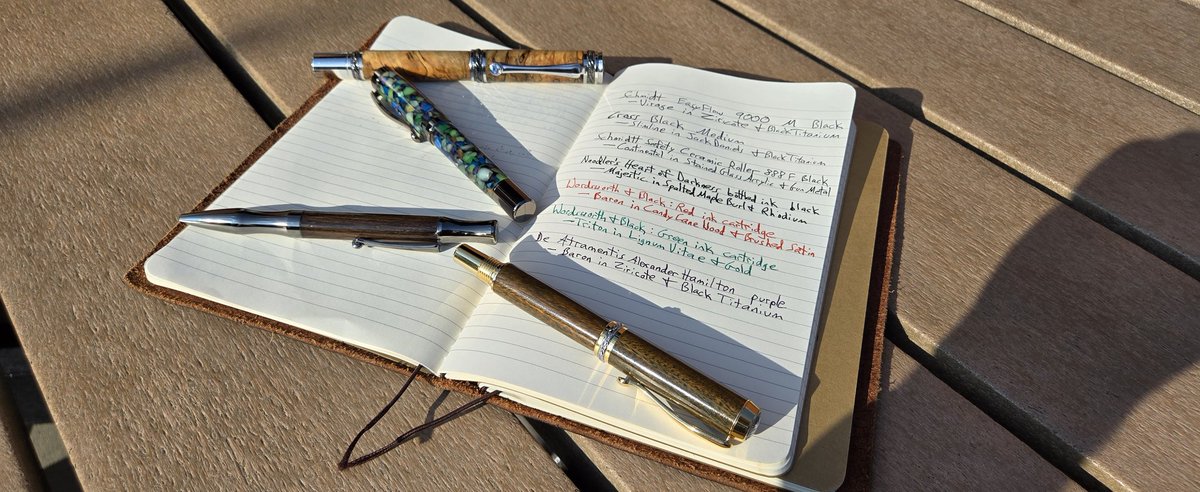 Schmidt EasyFlow 9000 M Black
- Virage in Ziricote & Black Titanium
Cross Black Medium
- Slimline in Jack Daniels & Black Titanium
Schmidt Safety Ceramic Roller 888 F Black
- Continental in Stained Glass Acrylic & Gun Metal
Noodler's Heart of Darkness bottled ink black
- Majestic in Spalted Maple Burl & Rhodium
Wordsworth & Black: Red ink cartridge
- Baron in Candy Cane Wood & Brushed Satin
Wordsworth & Black: Green ink cartridge
- Triton in Lignum Vitae & Gold
De Atramentis Alexander Hamilton purple
- Baron in Ziricote & Black Titanium